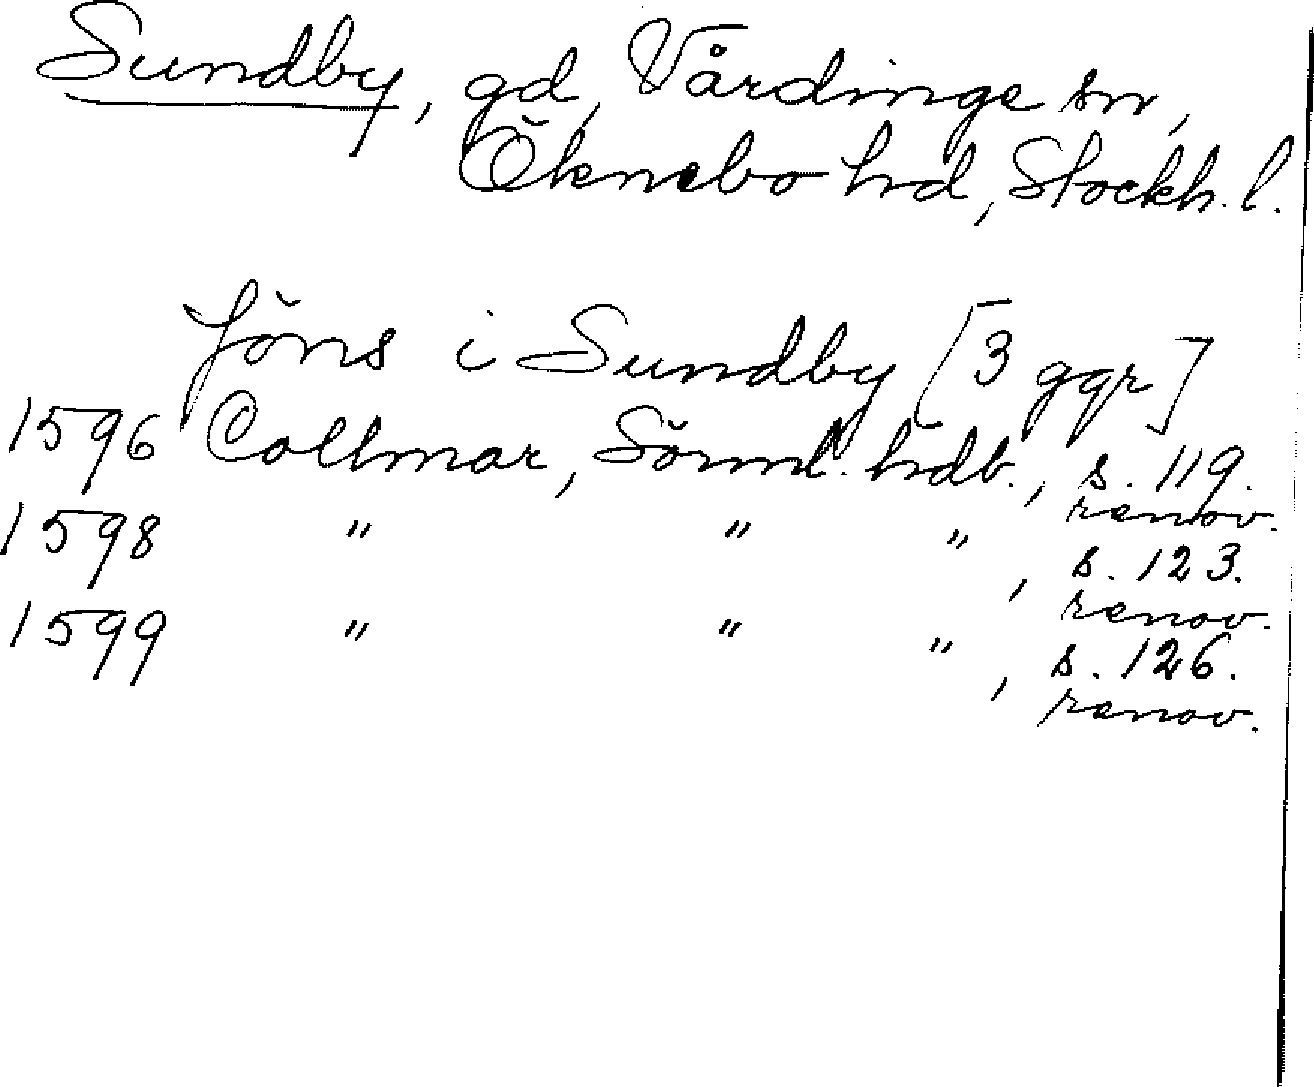 Sundby, gd, Vårdinge sn,
Öknebo hd, Stockh. l.
Jöns i Sundby [3 ggr]
1596 Collmar, Sörml. hdb., s. 119.
renov.
1598 " " " , s. 123.
renov.
1599 " " " , s. 126.
renov.